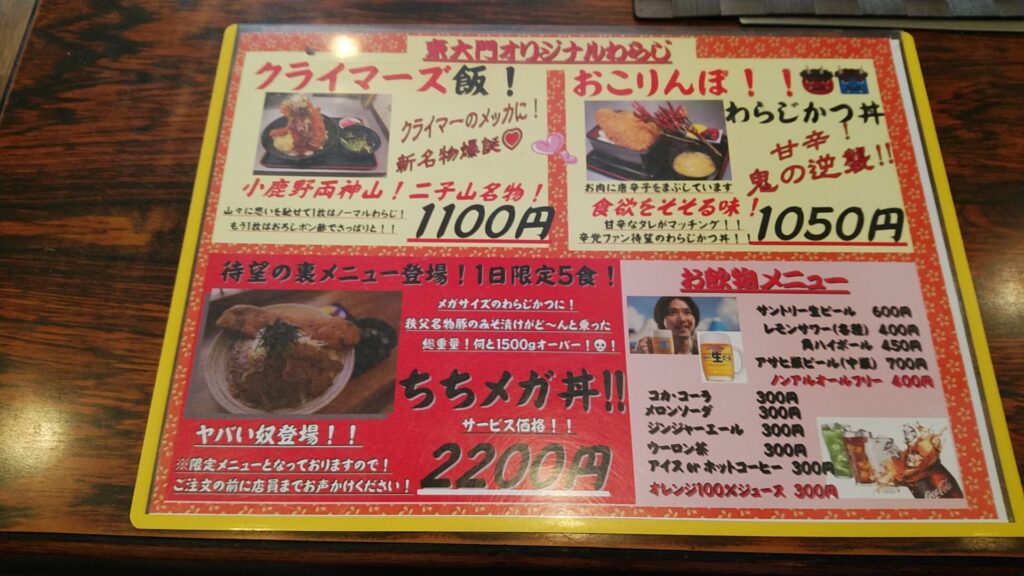 東大門オリジナルわらじ
クライマーズ飯！
クライマーのメッカに！
新名物爆誕
小鹿野両神山！二子山名物！
山々に思いを馳せて1枚はノーマルわらじ！
もう1枚はおろしポン酢でさっぱりと！！
1100円
おこりんぼ！！
わらじかつ丼
甘辛！
鬼の逆襲！！
お肉に唐辛子をまぶしています
食欲をそそる味！
甘辛なタレがマッチング！！
辛党ファン待望のわらじかつ丼！！
1050円
待望の裏メニュー登場！1日限定5食！
メガサイズのわらじかつに！
秩父名物豚のみそ漬けがど～んと乗った
総重量！何と1500gオーバー！！
ちちメガ丼!!
ヤバい奴登場！！
サービス価格！！
2200円
※限定メニューとなっておりますので！
ご注文の前に店員までお声かけください！
お飲物メニュー
サントリー生ビール 600円
レモンサワー(各種) 400円
角ハイボール 450円
アサヒ瓶ビール(中瓶) 700円
ノンアルオールフリー 400円
コカ・コーラ 300円
メロンソーダ 300円
ジンジャーエール 300円
ウーロン茶 300円
アイス or ホットコーヒー 300円
オレンジ100％ジュース 300円
生
Coca-Cola